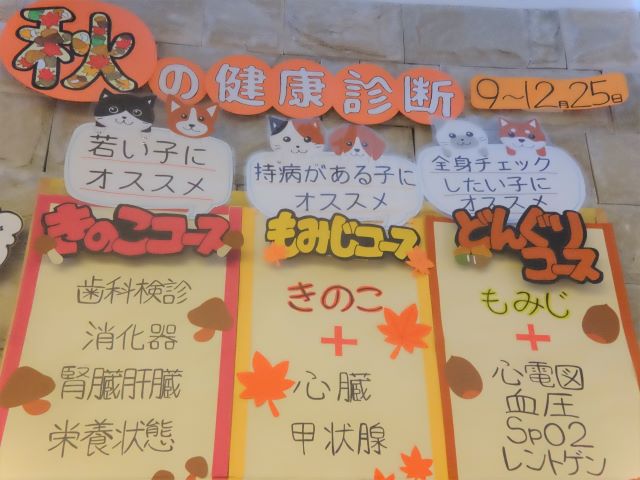 秋の健康診断
9〜12月25日
若い子に
オススメ
きのこコース
歯科検診
消化器
腎臓肝臓
栄養状態
持病がある子に
オススメ
もみじコース
きのこ
+
心臓
甲状腺
全身チェック
したい子に
オススメ
どんぐり
コース
もみじ
+
心電図
血圧
SpO2
レントゲン